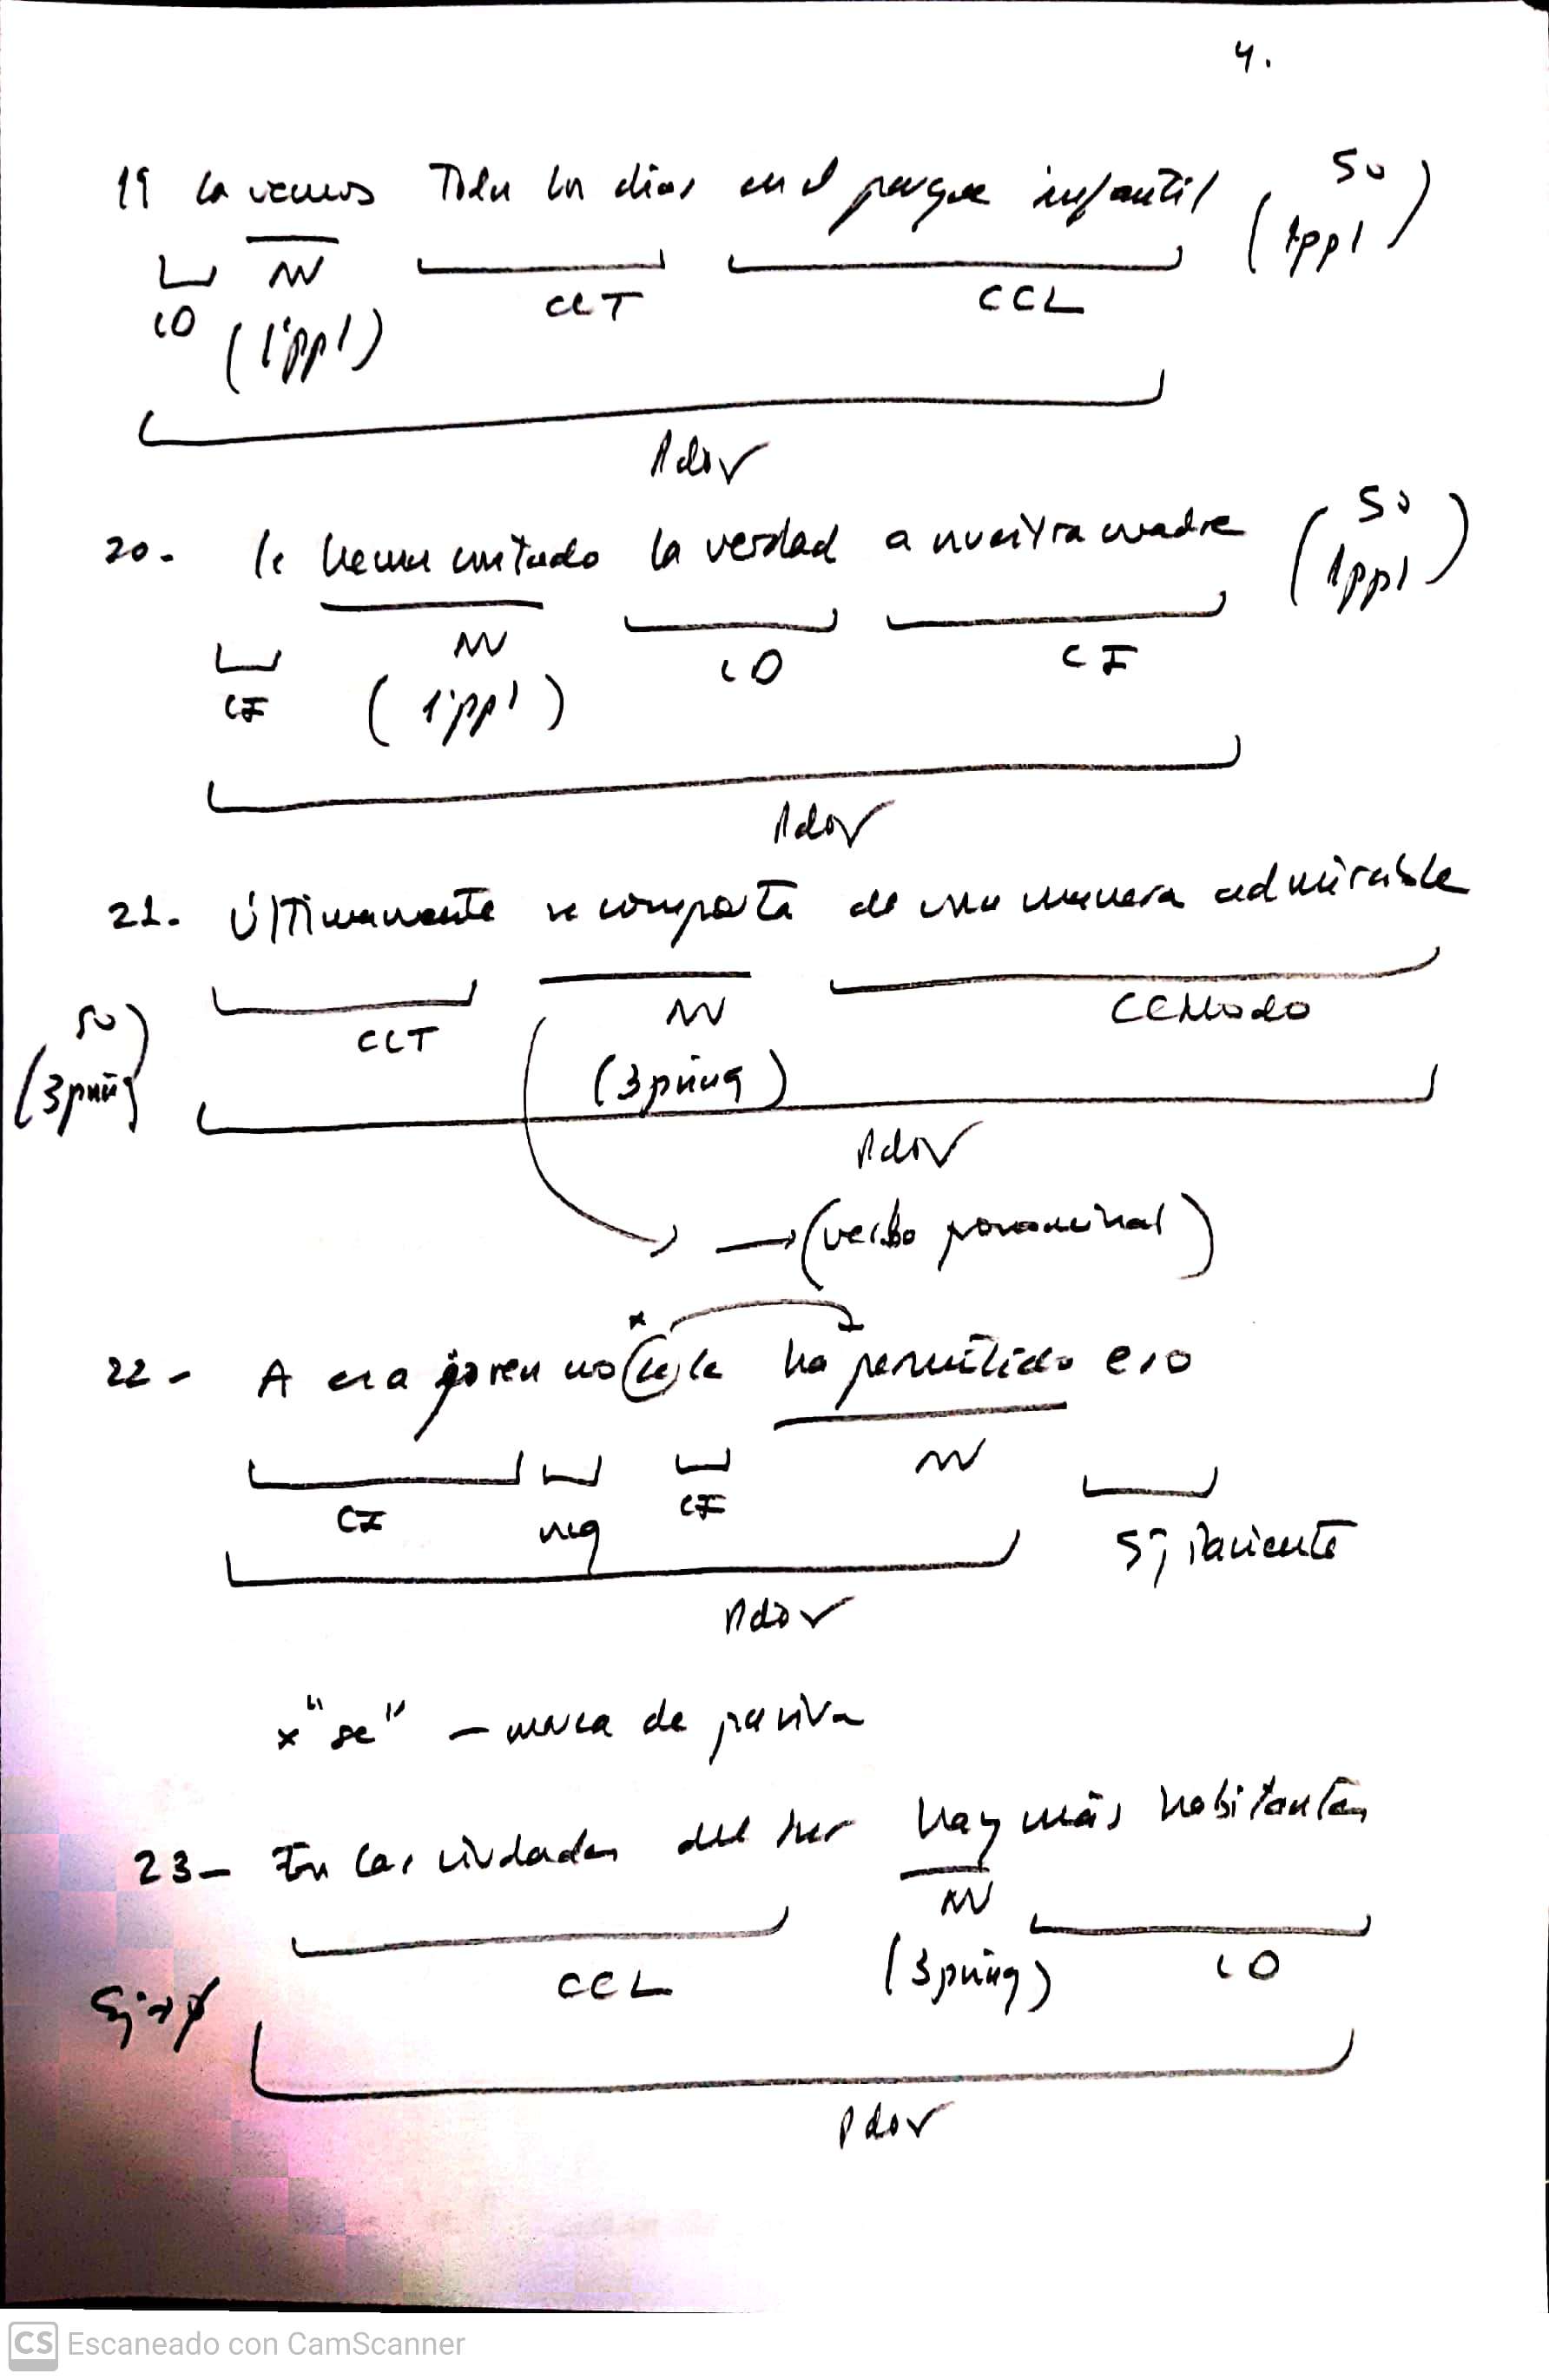 4.
19 La vemos Todos los días en el parque infantil (SO 1ppl)
CD NV CCT CCL
(1ªppl)
PdoV
20- le hemos contado la verdad a nuestra madre (SO 1ppl)
CI NV CD CI
(1ªppl)
PdoV
21- Últimamente se comporta de una manera admirable
CCT NV CCModo
(SO 3psing) (3psing)
PdoV
→ (verbo pronominal)
22- A esa joven no se le ha permitido eso
CI neg CI NV
Sj Paciente
PdoV
x "se" - marca de pasiva
23- En las ciudades del sur hay más habitantes
NV
CCL (3psing) CD
PdoV
CS Escaneado con CamScanner